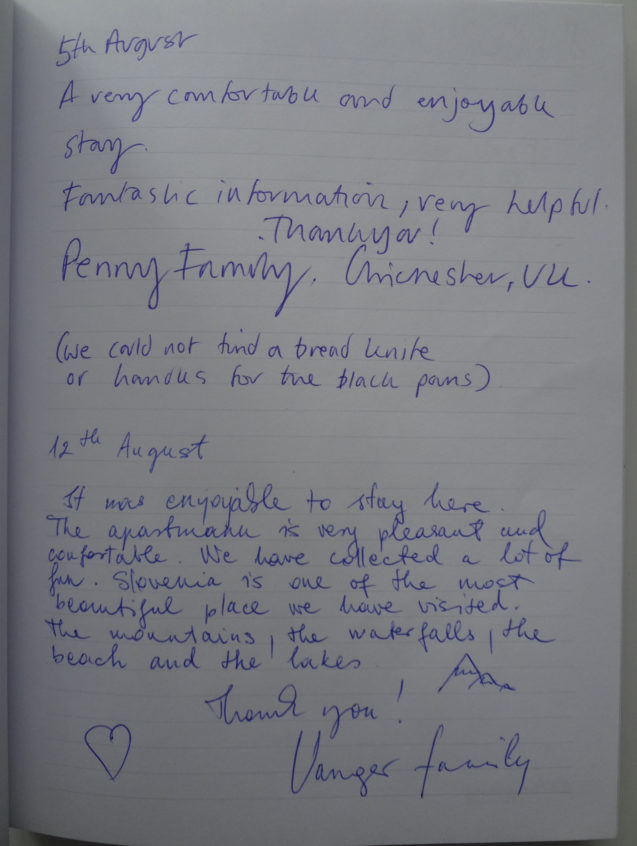 5th August
A very comfortable and enjoyable
stay.
Fantastic information, very helpful.
Thankyou!
Penny Family. Chichester, UK.
(we could not find a bread knife
or handles for the black pans)
12th August
It was enyojable to stay here.
The apartmann is very pleasant and
comfortable. We have collected a lot of
fun. Slovenia is one of the most
beautiful place we have visited.
The mountains, the waterfalls, the
beach and the lakes
Thank you!
Vanger family